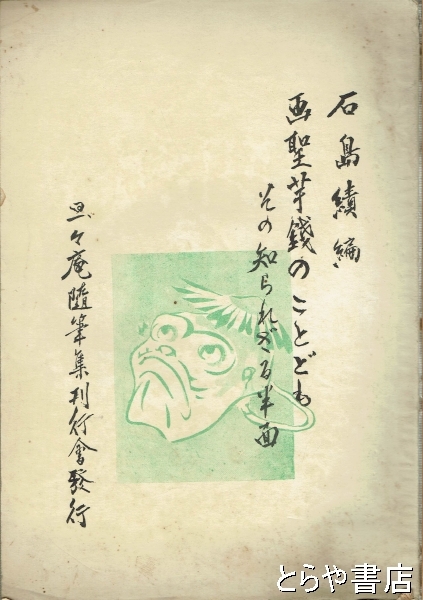 石島績編
画聖芋錢のことども
その知られざる半面
思々庵随筆集刊行會發行
とらや書店